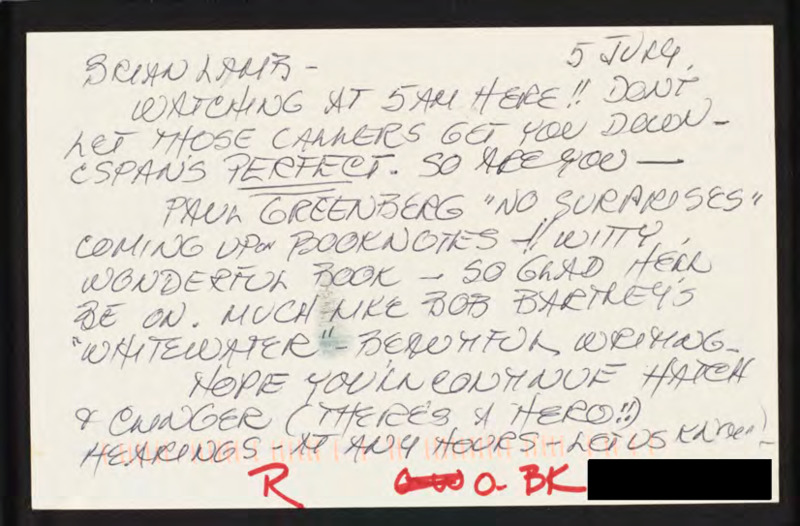 BRIAN LAMB - 5 JULY,
WATCHING AT 5AM HERE!! DON'T
LET THOSE CALLERS GET YOU DOWN -
CSPAN'S PERFECT. SO ARE YOU —
PAUL GREENBERG "NO SURPRISES"
COMING UP ON BOOKNOTES -!! WITTY,
WONDERFUL BOOK - SO GLAD HE'LL
BE ON. MUCH LIKE BOB BARTLEY'S
"WHITEWATER" - BEAUTIFUL WRITING -
HOPE YOU'LL CONTINUE HATCH
& CLINGER (THERE'S A HERO!!)
HEARINGS AT ANY HOURS - LET US KNOW! -
R O- BK